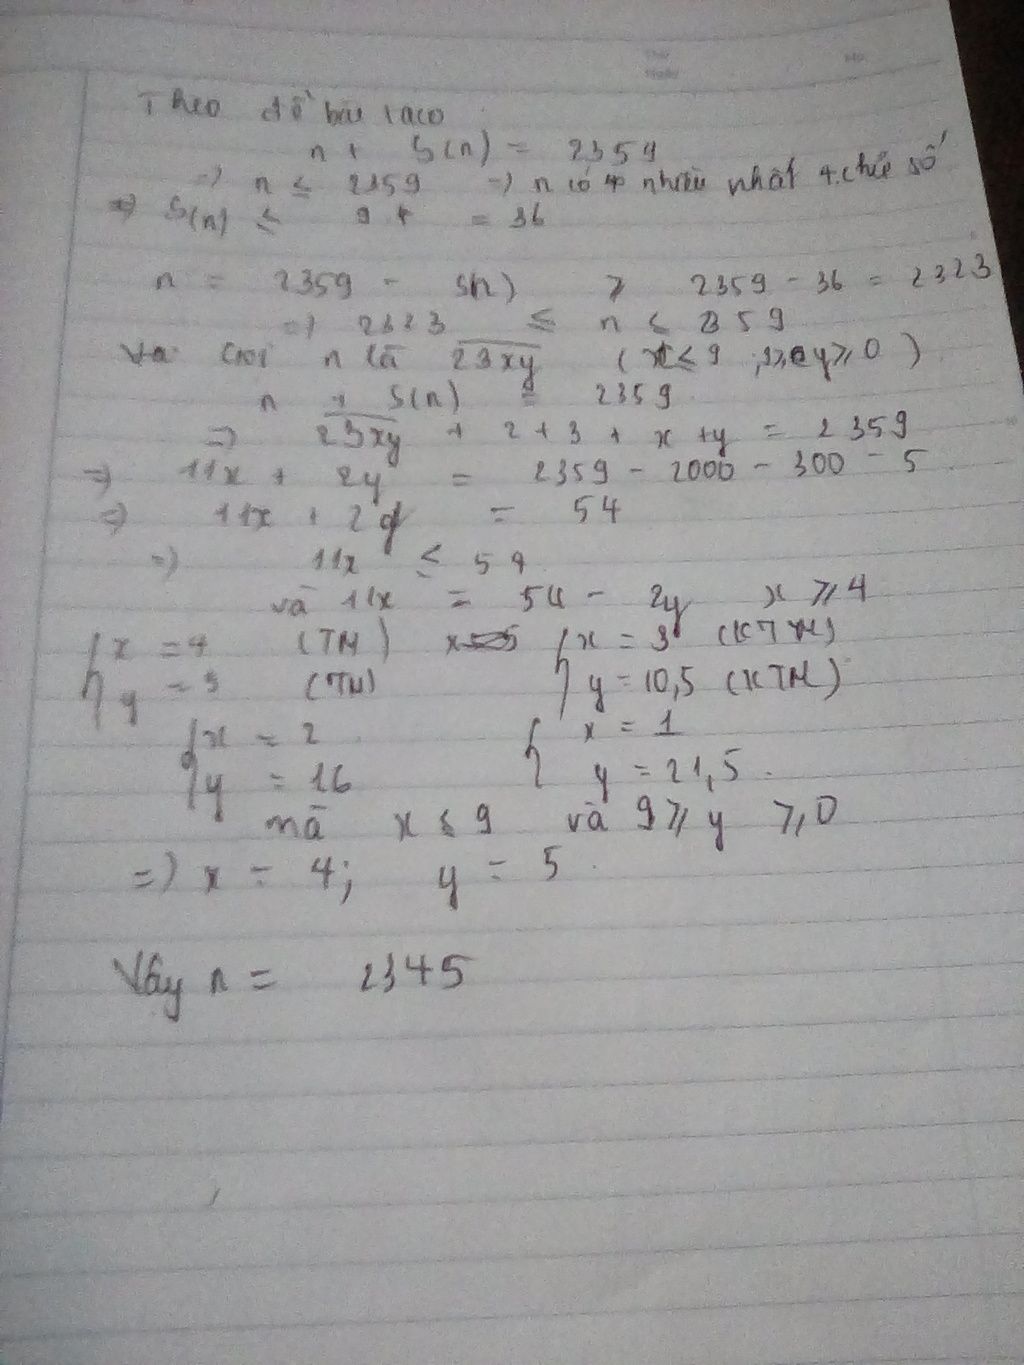 Theo đề bài ta có
n + S(n) = 2359
=> n ≤ 2359 => n có nhiều nhất 4 chữ số
=> S(n) ≤ 9 4 = 36
n = 2359 - S(n) ≥ 2359 - 36 = 2323
=> 2323 ≤ n ≤ 2359
Gọi n là 23xy (x ≤ 9 ; y ≥ 0)
n + S(n) = 2359
=> 23xy + 2 + 3 + x + y = 2359
=> 11x + 2y = 2359 - 2000 - 300 - 5
=> 11x + 2y = 54
=> 11x ≤ 54
và 11x = 54 - 2y x ≥ 4
{ x = 4 (TM) { x = 3 (KTM)
{ y = 5 (TM) { y = 10,5 (KTM)
{ x = 2 { x = 1
{ y = 16 { y = 21,5
mà x ≤ 9 và 9 ≥ y ≥ 0
=> x = 4; y = 5
Vậy n = 2345